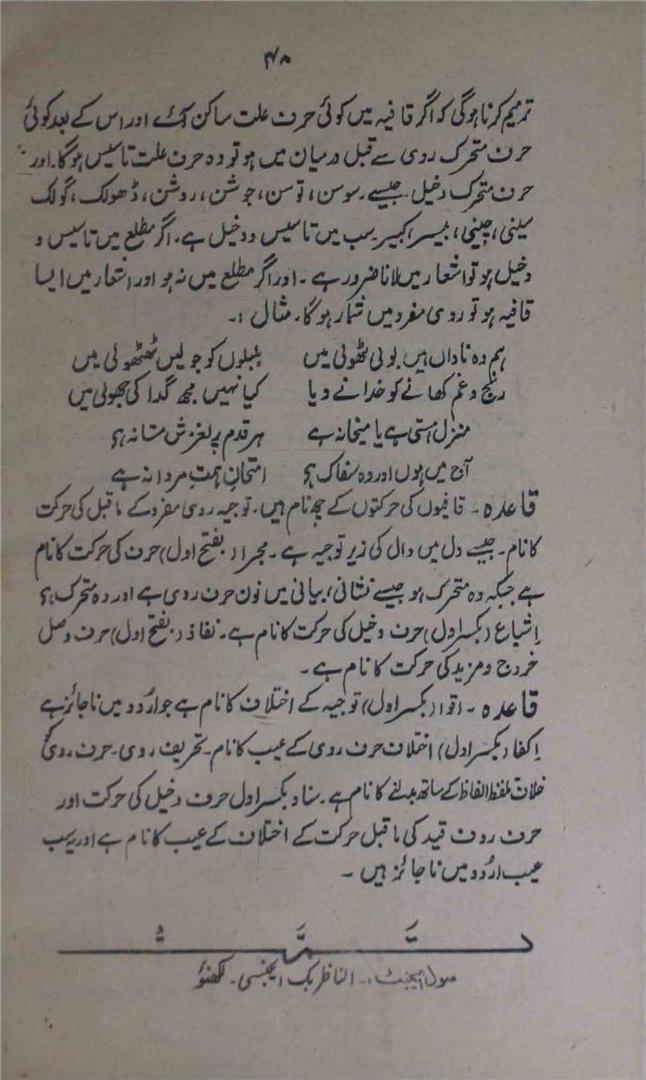 ۴۸
ترمیم کرنا ہوگی کہ اگر قافیہ میں کوئی حرف علت ساکن آئے اور اس کے بعد کوئی
حرف متحرک روی سے قبل درمیان میں ہو تو وہ حرف علت تاسیس ہوگا۔ اور
حرف متحرک دخیل۔ جیسے۔ سوسن، توسن، جوشن، روشن، ڈھولک، گولک
سینی، چینی، بیسر، کبیر سب میں تاسیس و دخیل ہے۔ اگر مطلع میں تاسیس و
دخیل ہو تو اشعار میں لانا ضرور ہے۔ اور اگر مطلع میں نہ ہو اور اشعار میں ایسا
قافیہ ہو تو روی مفرد میں شمار ہوگا۔ مثال :۔
ہم وہ ناداں ہیں بولی ٹھولی میں بلبلوں کو جو لیں ٹھٹھولی میں
رنج و غم کھانے کو خدا نے دیا کیا نہیں مجھ گدا کی جھولی میں
منزل ہستی ہے یا میخانہ ہے ہر قدم پر لغزش مستانہ ہے
آج میں ہوں اور وہ سفاک ہے امتحان ہمت مردانہ ہے
قاعدہ۔ قافیوں کی حرکتوں کے چھ نام ہیں۔ توجیہ روی مفرد کے ماقبل کی حرکت
کا نام۔ جیسے دل میں دال کی زیر توجیہ ہے۔ مجرا (بفتح اول) حرف کی حرکت کا نام
ہے جبکہ وہ متحرک ہو جیسے نشانی، بیانی میں نون حرف روی ہے اور وہ متحرک ہے
اشباع (بکسر اول) حرف دخیل کی حرکت کا نام ہے۔ نفاذ (بفتح اول) حرف وصل
خروج و مزید کی حرکت کا نام ہے۔
قاعدہ۔ اقوا (بکسر اول) توجیہ کے اختلاف کا نام ہے جو اُردو میں ناجائز ہے
اکفا (بکسر اول) اختلاف حرف روی کے عیب کا نام۔ تحریف، روی۔ حرف روی کے
خلاف تلفظ الفاظ کے ساتھ بدلنے کا نام ہے۔ سناد بکسر اول حرف دخیل کی حرکت اور
حرف ردف قید کی ماقبل حرکت کے اختلاف کے عیب کا نام ہے اور یہ سب
عیب اردو میں ناجائز ہیں۔
تمت
سول ایجنٹ :۔ الناظر بک ایجنسی۔ لکھنؤ